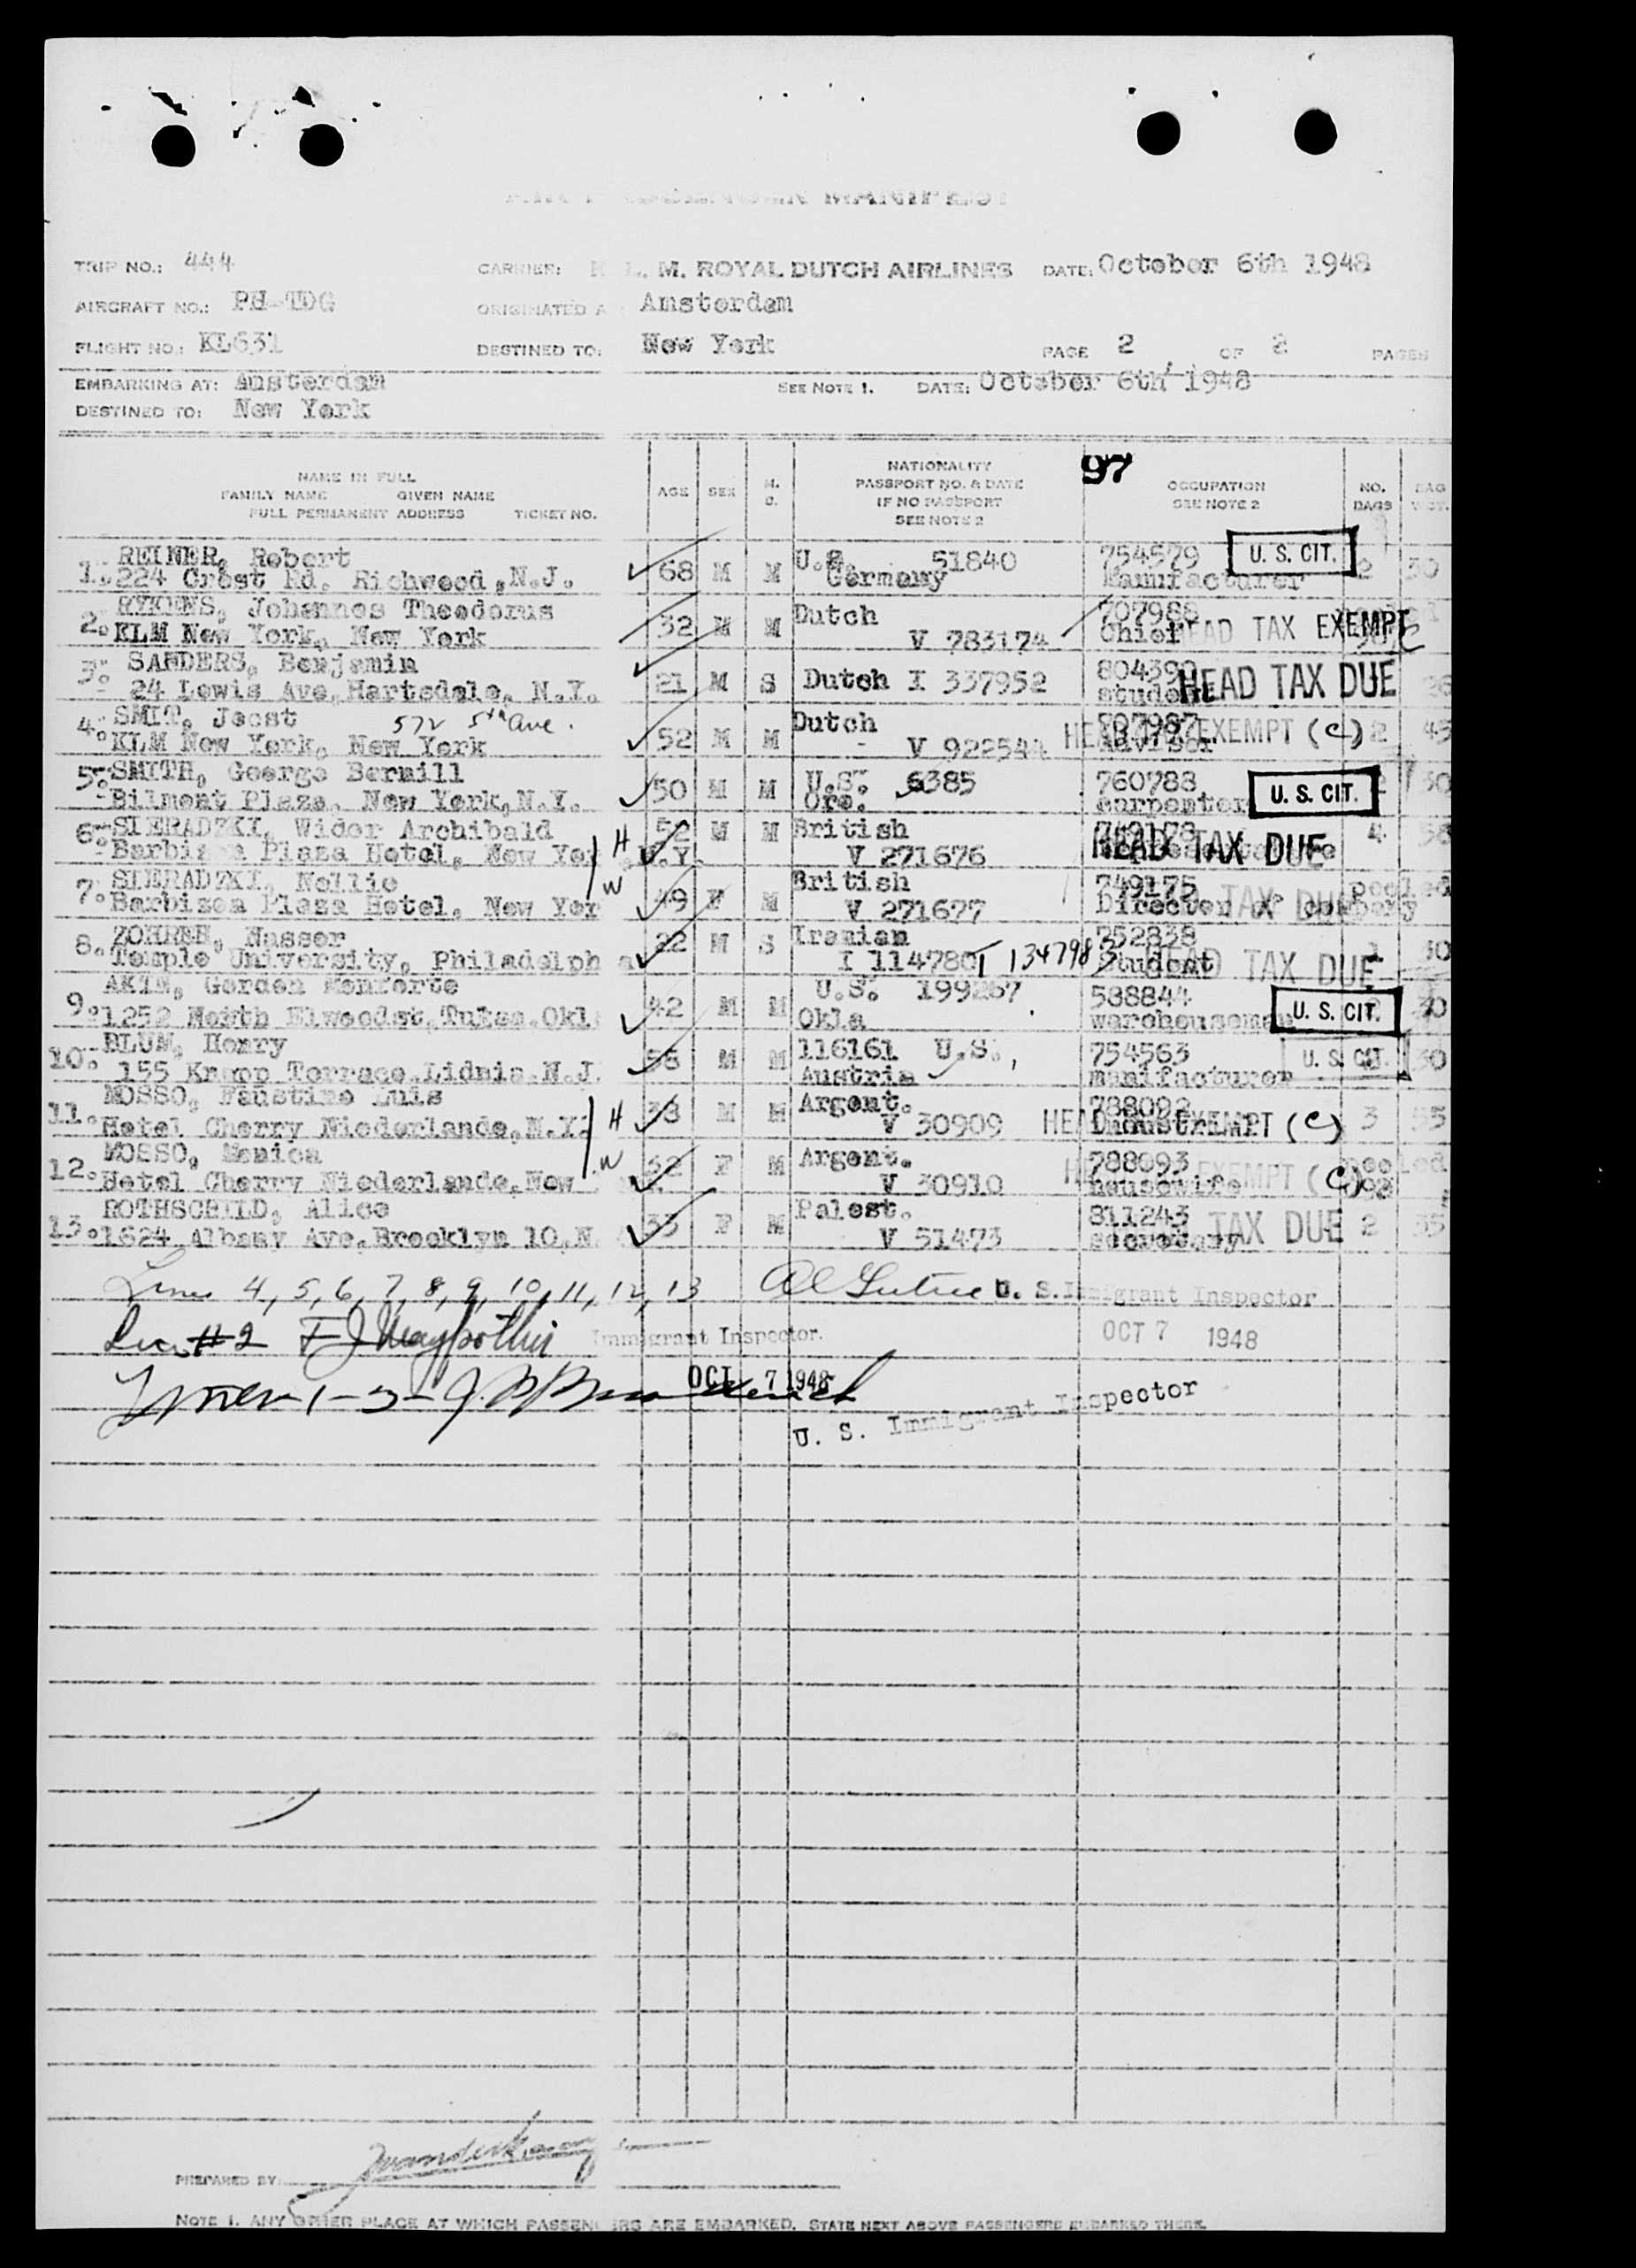 TRIP NO.: 444
CARRIER: L. M. ROYAL DUTCH AIRLINES
DATE: October 6th 1948
AIRCRAFT NO.: PH-TDG
ORIGINATED A Amsterdam
FLIGHT NO.: KL631
DESTINED TO: New York
PAGE 2 OF 2 PAGES
EMBARKING AT: Amsterdam
SEE NOTE 1. DATE: October 6th 1948
DESTINED TO: New York
97
NAME IN FULL
FAMILY NAME GIVEN NAME
FULL PERMANENT ADDRESS TICKET NO.
AGE SEX M. S.
NATIONALITY
PASSPORT NO. & DATE
IF NO PASSPORT
SEE NOTE 2
OCCUPATION
SEE NOTE 2
NO. BAGS
BAG
REINER, Robert U.S. 51840 754579 U. S. CIT.
1. 224 Crest Rd, Richwood, N.J. 68 M M Germany Manufacturer 2 30
RYKENS, Johannes Theodorus Dutch 707988
2. KLM New York, New York 32 M M V 783174 Chief HEAD TAX EXEMPT
SANDERS, Benjamin 804390
3. 24 Lewis Ave, Hartsdale, N.Y. 21 M S Dutch I 337952 student HEAD TAX DUE
SMIT, Joost 572 5th Ave. Dutch 707987
4. KLM New York, New York 52 M M V 922544 HEAD EXEMPT (C) 2 43
SMITH, George Bermill U.S. 6385 760788
5. Bilmont Plaza, New York, N.Y. 50 M M Ore. carpenter U. S. CIT. 30
SIERADZKI, Wider Archibald British
6. Plaza Hotel, New Yor N.Y. H 52 M M V 271676 HEAD TAX DUE 4 38
SIERADZKI, Nellie British 749175
7. Barbizon Plaza Hotel, New Yor W 49 F M V 271677 Director of Company TAX pooled
ZOHREH, Nasser Iranian 752838
8. Temple University, Philadelph a 22 M S I 114780 134798 Student TAX DUE 1 30
AKIN, Gordon Monforte U.S. 199267 588844
9. 1252 North Elwoodst, Tulsa, Okl 42 M M Okla U. S. CIT. 30
BLUM, Henry 116161 U.S. 754563
10. 155 Terrace, N.J. 58 M M Austria manifacturer U. S. CIT. 30
MOSSO, Faustino Luis Argent. 788092
11. Hotel Cherry Niederlande, N.Y. H 38 M M V 30909 EXEMPT (C) 3 55
MOSSO, Monica Argent. 788093
12. Hotel Cherry Niederlande, New W 32 F M V 30910 housewife EXEMPT (C)
ROTHSCHILD, Alice Palest. 811243
13. 1624 Albany Ave, Brooklyn 10, N. 33 F M V 51473 secretary TAX DUE 2 35
Lines 4, 5, 6, 7, 8, 9, 10, 11, 12, 13 U. S. Immigrant Inspector
#2 Immigrant Inspector. OCT 7 1948
1-3- OCT 7 1948
U. S. Immigrant Inspector
PREPARED BY
NOTE 1. ANY OTHER PLACE AT WHICH PASSEN ERS ARE EMBARKED. STATE NEXT ABOVE PASSENGERS EMBARKED THERE.